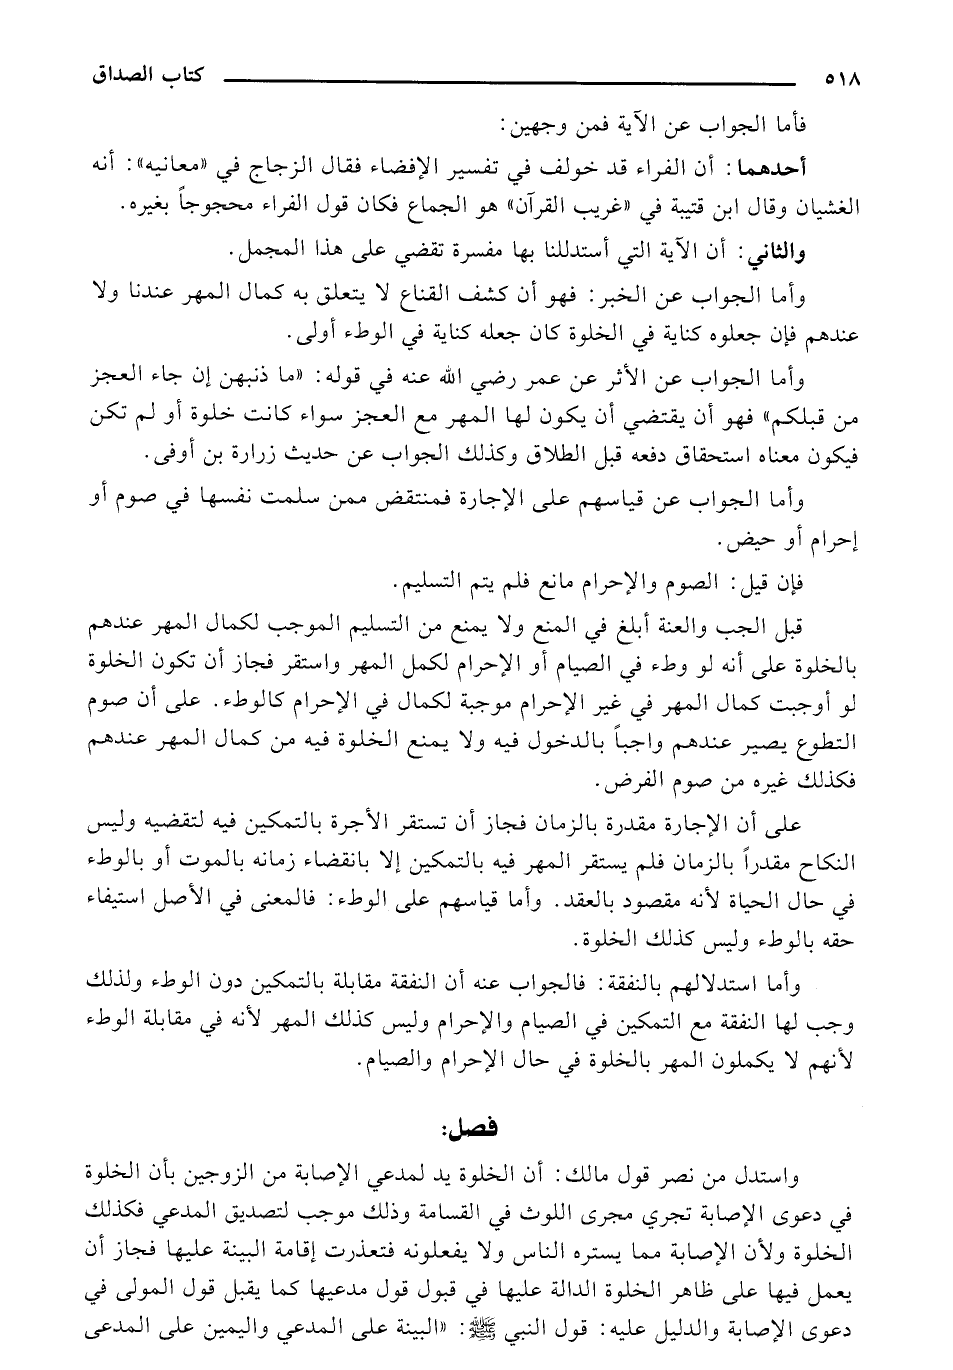 ٥١٨ كتاب الصداق
فأما الجواب عن الآية فمن وجهين:
أحدهما: أن الفراء قد خولف في تفسير الإفضاء فقال الزجاج في «معانيه»: أنه
الغشيان وقال ابن قتيبة في «غريب القرآن» هو الجماع فكان قول الفراء محجوجاً بغيره.
والثاني: أن الآية التي أستدللنا بها مفسرة تقضي على هذا المجمل.
وأما الجواب عن الخبر: فهو أن كشف القناع لا يتعلق به كمال المهر عندنا ولا
عندهم فإن جعلوه كناية في الخلوة كان جعله كناية في الوطء أولى.
وأما الجواب عن الأثر عن عمر رضي الله عنه في قوله: «ما ذنبهن إن جاء العجز
من قبلكم» فهو أن يقتضي أن يكون لها المهر مع العجز سواء كانت خلوة أو لم تكن
فيكون معناه استحقاق دفعه قبل الطلاق وكذلك الجواب عن حديث زرارة بن أوفى.
وأما الجواب عن قياسهم على الإجارة فمنتقض ممن سلمت نفسها في صوم أو
إحرام أو حيض.
فإن قيل: الصوم والإحرام مانع فلم يتم التسليم.
قبل الجب والعنة أبلغ في المنع ولا يمنع من التسليم الموجب لكمال المهر عندهم
بالخلوة على أنه لو وطء في الصيام أو الإحرام لكمل المهر واستقر فجاز أن تكون الخلوة
لو أوجبت كمال المهر في غير الإحرام موجبة لكمال في الإحرام كالوطء. على أن صوم
التطوع يصير عندهم واجباً بالدخول فيه ولا يمنع الخلوة فيه من كمال المهر عندهم
فكذلك غيره من صوم الفرض.
على أن الإجارة مقدرة بالزمان فجاز أن تستقر الأجرة بالتمكين فيه لتقضيه وليس
النكاح مقدراً بالزمان فلم يستقر المهر فيه بالتمكين إلا بانقضاء زمانه بالموت أو بالوطء
في حال الحياة لأنه مقصود بالعقد. وأما قياسهم على الوطء: فالمعنى في الأصل استيفاء
حقه بالوطء وليس كذلك الخلوة.
وأما استدلالهم بالنفقة: فالجواب عنه أن النفقة مقابلة بالتمكين دون الوطء ولذلك
وجب لها النفقة مع التمكين في الصيام والإحرام وليس كذلك المهر لأنه في مقابلة الوطء
لأنهم لا يكملون المهر بالخلوة في حال الإحرام والصيام.
فصل:
واستدل من نصر قول مالك: أن الخلوة يد لمدعي الإصابة من الزوجين بأن الخلوة
في دعوى الإصابة تجري مجرى اللوث في القسامة وذلك موجب لتصديق المدعي فكذلك
الخلوة ولأن الإصابة مما يستره الناس ولا يفعلونه فتعذرت إقامة البينة عليها فجاز أن
يعمل فيها على ظاهر الخلوة الدالة عليها في قبول قول مدعيها كما يقبل قول المولى في
دعوى الإصابة والدليل عليه: قول النبي ﷺ: «البينة على المدعي واليمين على المدعى